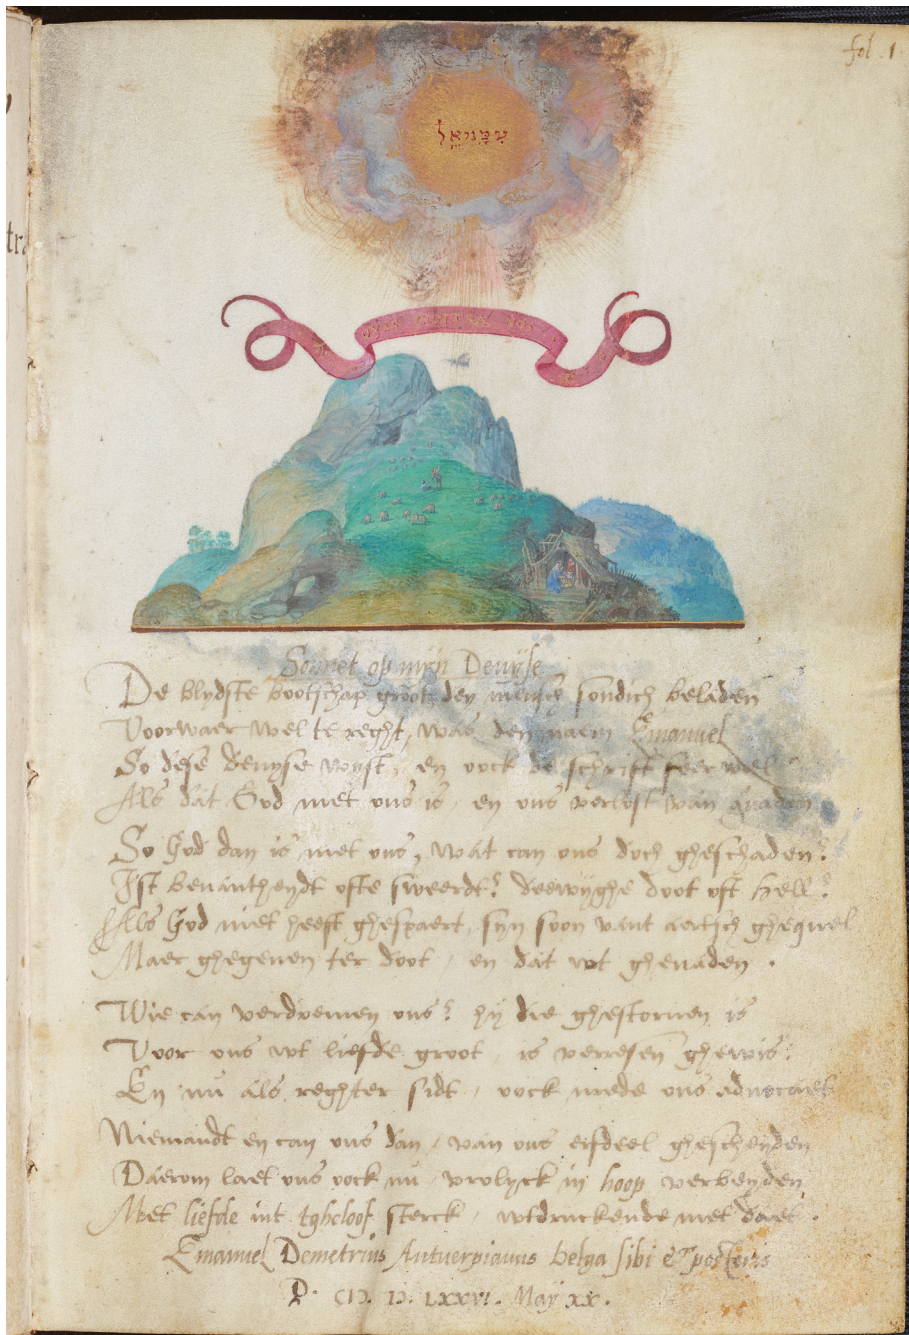 fol. 1
עִמָּנוּאֵל
QVIS CONTRA NOS
Sonnet op mijn Devijse
De blydste bootschap groot, den mensche sondich beladen
Voorwaer wel te reght, was den naem Emanuel
So dese devyse wyst, en oock de schrift seer wel
Als dat God met ons is, en ons verlost van quaden
So God dan is met ons, wat can ons doch gheschaden?
Ist benautheydt ofte sweerdt? deewighe doot oft hell?
Als God niet heeft ghespaert, syn soon vant aertsch ghequel
Maer ghegeven ter doot, en dat wt ghenaden.
Wie can verdoemen ons? hij die ghestorven is
Voor ons wt liefde groot, is verresen ghewis:
En nu als reghter sidt, oock mede ons advocaet
Niemandt en can ons dan, van ons eifdeel ghescheyden
Daerom laet ons oock nu, vrolyck in hoop verbeyden
Met liefde int tgheloof sterck, wtdruckende met daet.
Emanuel Demetrius Antverpianus belga sibi et posteris
P. CIƆ. IƆ. LXXVI. May XX.